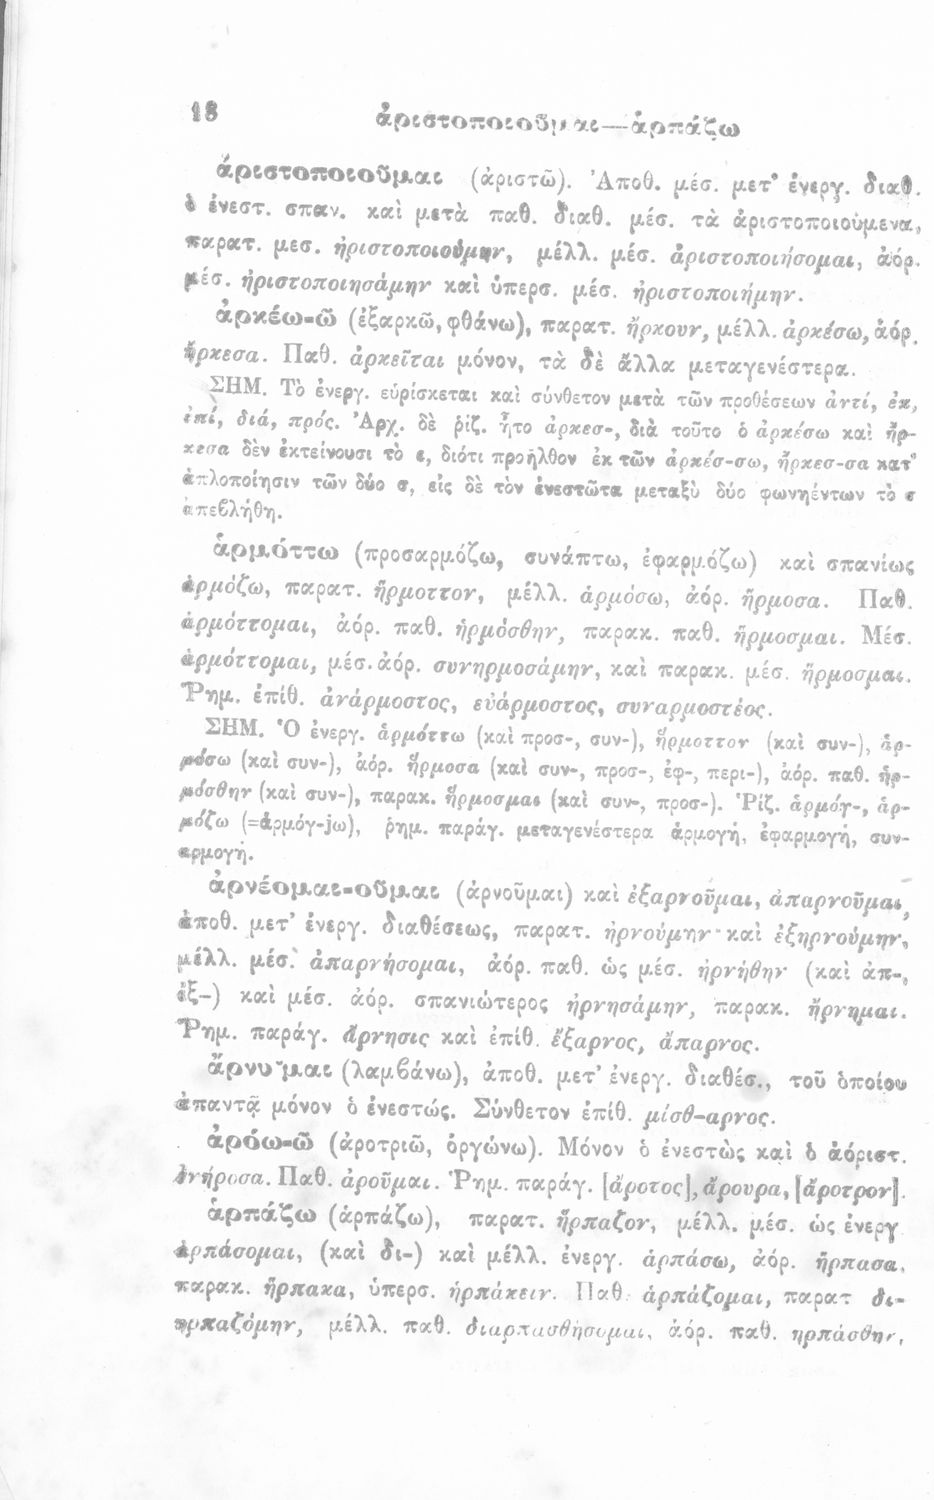 18 ἀριστοποιοῦμαι—ἁρπάζω
ἀριστοποιοῦμαι (ἀριστῶ). Ἀποθ. μέσ. μετ' ἐνεργ. διαθ.
ὁ ἐνεστ. σπαν. καὶ μετὰ παθ. διαθ. μέσ. τὰ ἀριστοποιούμενα,
παρατ. μεσ. ἠριστοποιούμην, μέλλ. μέσ. ἀριστοποιήσομαι, ἀόρ.
μέσ. ἠριστοποιησάμην καὶ ὑπερσ. μέσ. ἠριστοποιήμην.
ἀρκέω-ῶ (ἐξαρκῶ, φθάνω), παρατ. ἤρκουν, μέλλ. ἀρκέσω, ἀόρ.
ἤρκεσα. Παθ. ἀρκεῖται μόνον, τὰ δὲ ἄλλα μεταγενέστερα.
ΣΗΜ. Τὸ ἐνεργ. εὑρίσκεται καὶ σύνθετον μετὰ τῶν προθέσεων ἀντί, ἐκ,
ἐπί, διά, πρός. Ἀρχ. δὲ ῥίζ. ἦτο ἀρκεσ-, διὰ τοῦτο ὁ ἀρκέσω καὶ ἤρ-
κεσα δὲν ἐκτείνουσι τὸ ε, διότι προῆλθον ἐκ τῶν ἀρκέσ-σω, ἤρκεσ-σα κατ'
ἁπλοποίησιν τῶν δύο σ, εἰς δὲ τὸν ἐνεστῶτα μεταξὺ δύο φωνηέντων τὸ σ
ἀπεβλήθη.
ἁρμόττω (προσαρμόζω, συνάπτω, ἐφαρμόζω) καὶ σπανίως
ἁρμόζω, παρατ. ἥρμοττον, μέλλ. ἁρμόσω, ἀόρ. ἥρμοσα. Παθ.
ἁρμόττομαι, ἀόρ. παθ. ἡρμόσθην, παρακ. παθ. ἥρμοσμαι. Μέσ.
ἁρμόττομαι, μέσ. ἀόρ. συνηρμοσάμην, καὶ παρακ. μέσ. ἥρμοσμαι.
Ῥημ. ἐπίθ. ἀνάρμοστος, εὐάρμοστος, συναρμοστέος.
ΣΗΜ. Ὁ ἐνεργ. ἁρμόττω (καὶ προσ-, συν-), ἥρμοττον (καὶ συν-), ἁρ-
μόσω (καὶ συν-), ἀόρ. ἥρμοσα (καὶ συν-, προσ-, ἐφ-, περι-), ἀόρ. παθ. ἡρ-
μόσθην (καὶ συν-), παρακ. ἥρμοσμαι (καὶ συν-, προσ-). Ῥίζ. ἁρμόγ-, ἁρ-
μόζω (=ἁρμόγ-jω), ῥημ. παράγ. μεταγενέστερα ἁρμογή, ἐφαρμογή, συν-
αρμογή.
ἀρνέομαι-οῦμαι (ἀρνοῦμαι) καὶ ἐξαρνοῦμαι, ἀπαρνοῦμαι,
ἀποθ. μετ' ἐνεργ. διαθέσεως, παρατ. ἠρνούμην καὶ ἐξηρνούμην,
μέλλ. μέσ. ἀπαρνήσομαι, ἀόρ. παθ. ὡς μέσ. ἠρνήθην (καὶ ἀπ-,
ἐξ-) καὶ μέσ. ἀόρ. σπανιώτερος ἠρνησάμην, παρακ. ἤρνημαι.
Ῥημ. παράγ. ἄρνησις καὶ ἐπίθ. ἔξαρνος, ἄπαρνος.
ἄρνυμαι (λαμβάνω), ἀποθ. μετ' ἐνεργ. διαθέσ., τοῦ ὁποίου
ἀπαντᾷ μόνον ὁ ἐνεστώς. Σύνθετον ἐπίθ. μίσθ-αρνος.
ἀρόω-ῶ (ἀροτριῶ, ὀργώνω). Μόνον ὁ ἐνεστὼς καὶ ὁ ἀόριστ.
ἀνήροσα. Παθ. ἀροῦμαι. Ῥημ. παράγ. [ἄροτος], ἄρουρα, [ἄροτρον].
ἁρπάζω (ἁρπάζω), παρατ. ἥρπαζον, μέλλ. μέσ. ὡς ἐνεργ
ἁρπάσομαι, (καὶ δι-) καὶ μέλλ. ἐνεργ. ἁρπάσω, ἀόρ. ἥρπασα,
παρακ. ἥρπακα, ὑπερσ. ἡρπάκειν. Παθ. ἁρπάζομαι, παρατ δι-
ηρπαζόμην, μέλλ. παθ. διαρπασθήσομαι, ἀόρ. παθ. ηρπάσθην,